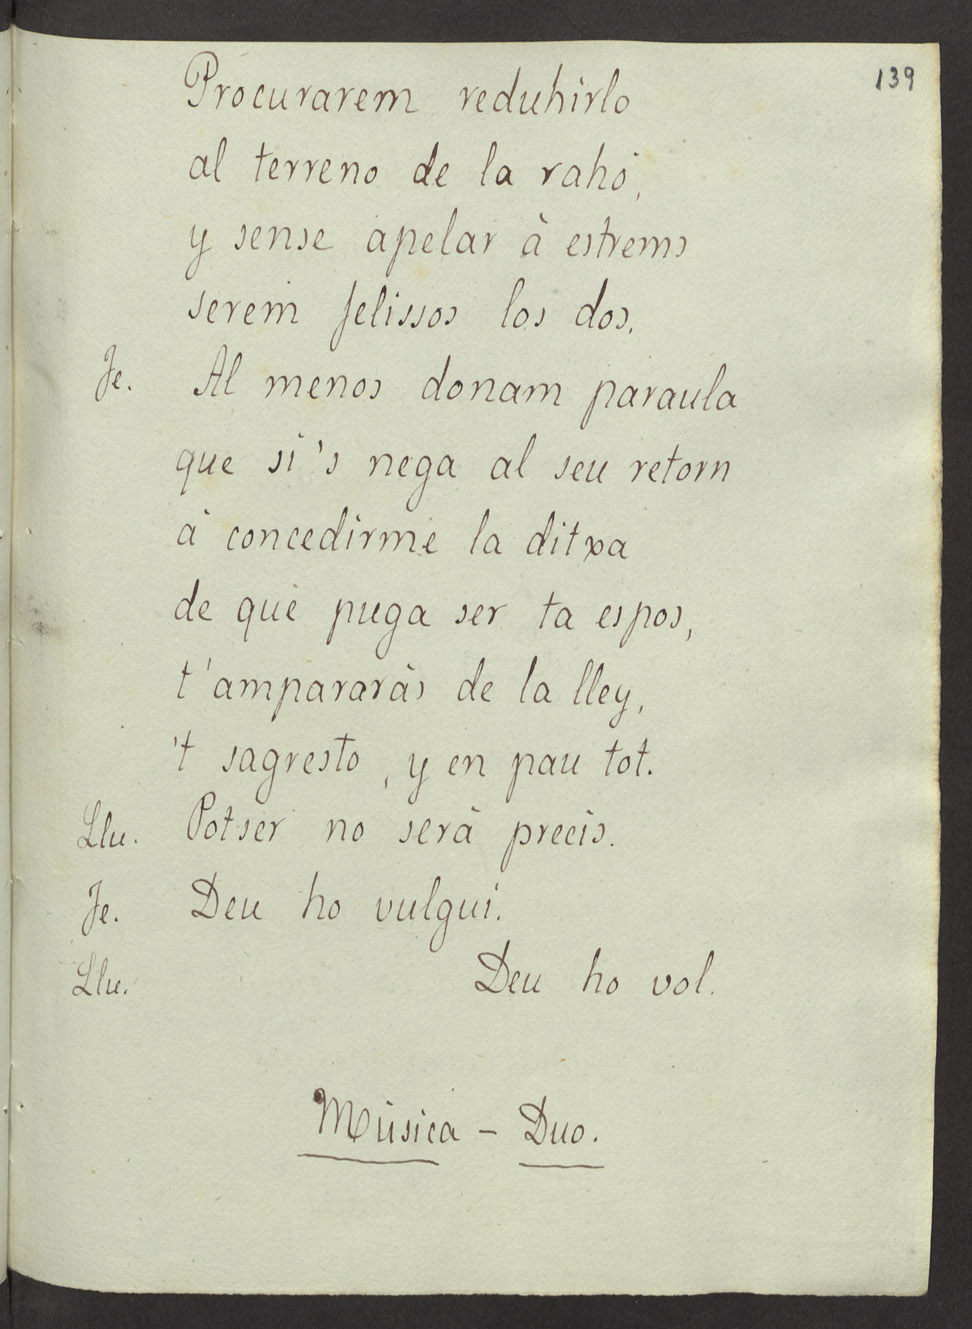 139
Procurarem reduhirlo
al terreno de la rahó,
y sense apelar à estrems
serem felissos los dos.
Je. Al menos donam paraula
que si 's nega al seu retorn
à concedirme la ditxa
de que puga ser ta espos,
t'ampararàs de la lley,
't sagresto, y en pau tot.
Llu. Potser no serà precis.
Je. Deu ho vulgui.
Llu. Deu ho vol.
Música - Duo.